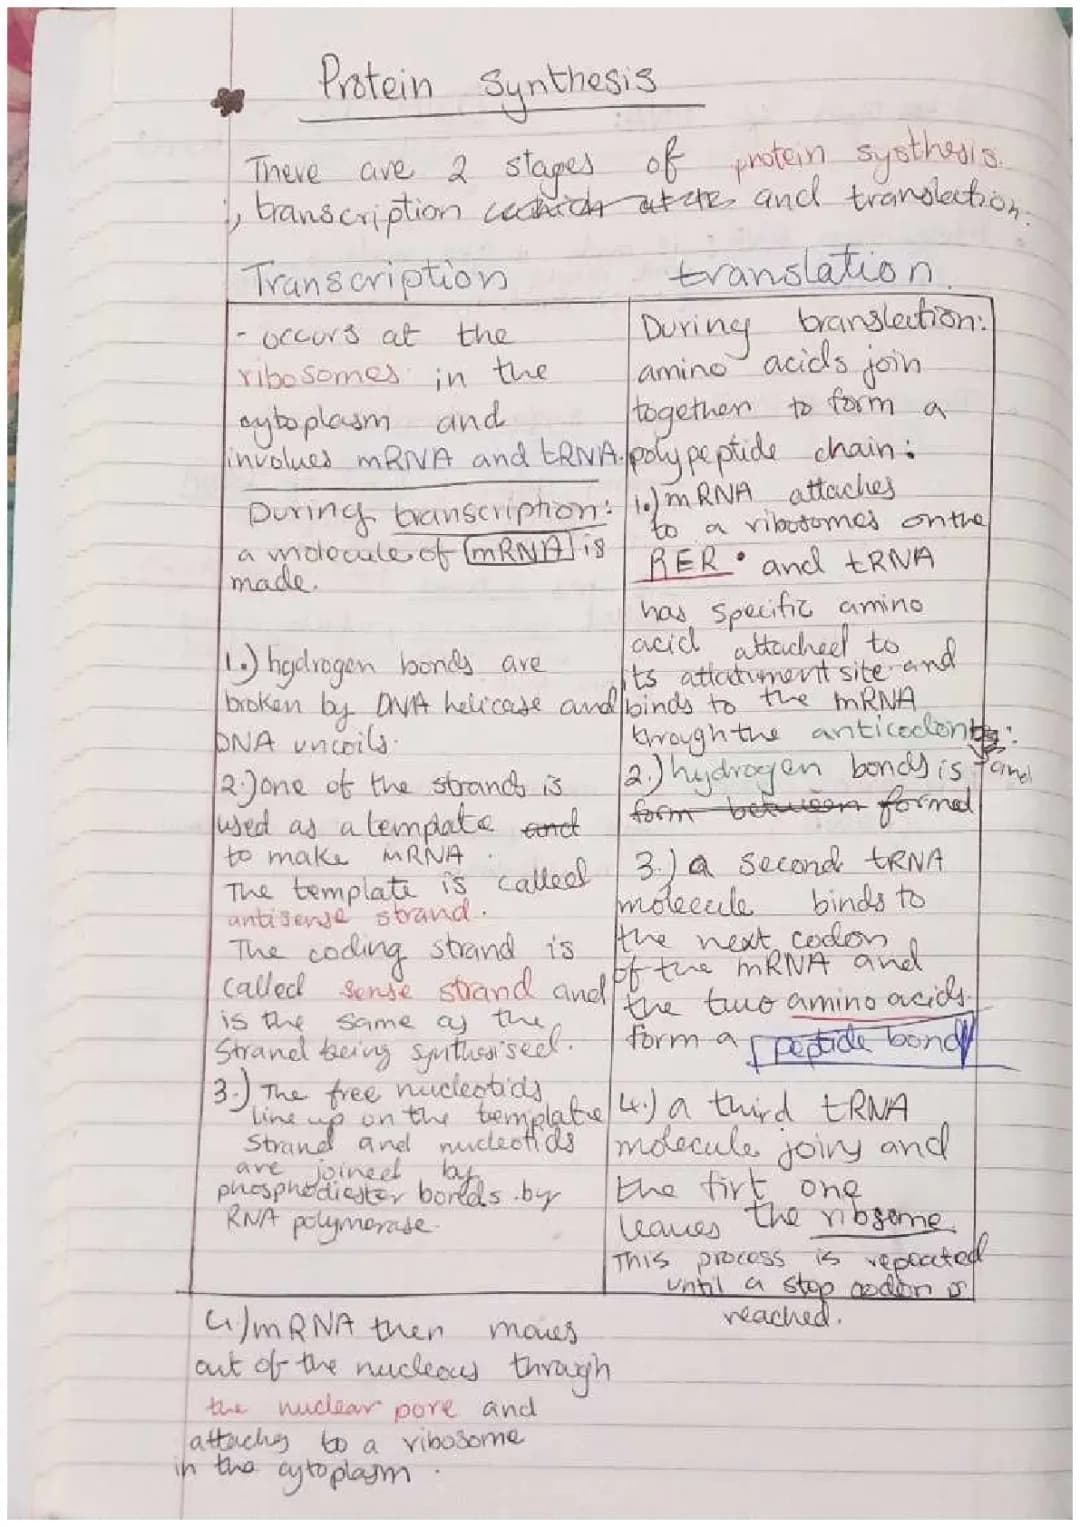 Protein Synthesis
There are 2 stages of protein systhesis.
, transcription and translation.
Transcription
- occurs at the
ribosomes in the
cytoplasm and
involves mRNA and tRNA.
During transcription:
a molecule of mRNA is
made.
1.) hydrogen bonds are
broken by DNA helicase and
DNA uncoils.
2.) one of the strands is
used as a template and
to make mRNA.
The template is called
antisense strand.
The coding strand is
called sense strand and
is the same as the
Strand being synthesised.
3.) The free nucleotids
line up on the template
Strand and nucleotids
are joined by
phosphodiester bonds by
RNA polymerase.
4.) mRNA then moves
out of the nucleous through
the nuclear pore and
attachs to a ribosome
in the cytoplasm.
translation.
During translation:
amino acids join
together to form a
polypeptide chain:
1.) mRNA attaches
to a ribosomes on the
RER and tRNA
has specific amino
acid attached to
its attatument site and
binds to the mRNA
through the anticodon
2.) hydrogen bonds is and
form between formed
3.) a second tRNA
molecule binds to
the next codon
of the mRNA and
the two amino acids
form a peptide bond
4.) a third tRNA
molecule joins and
the firt one
leaves the ribsome
This process is repeated
until a stop codon is
reached.